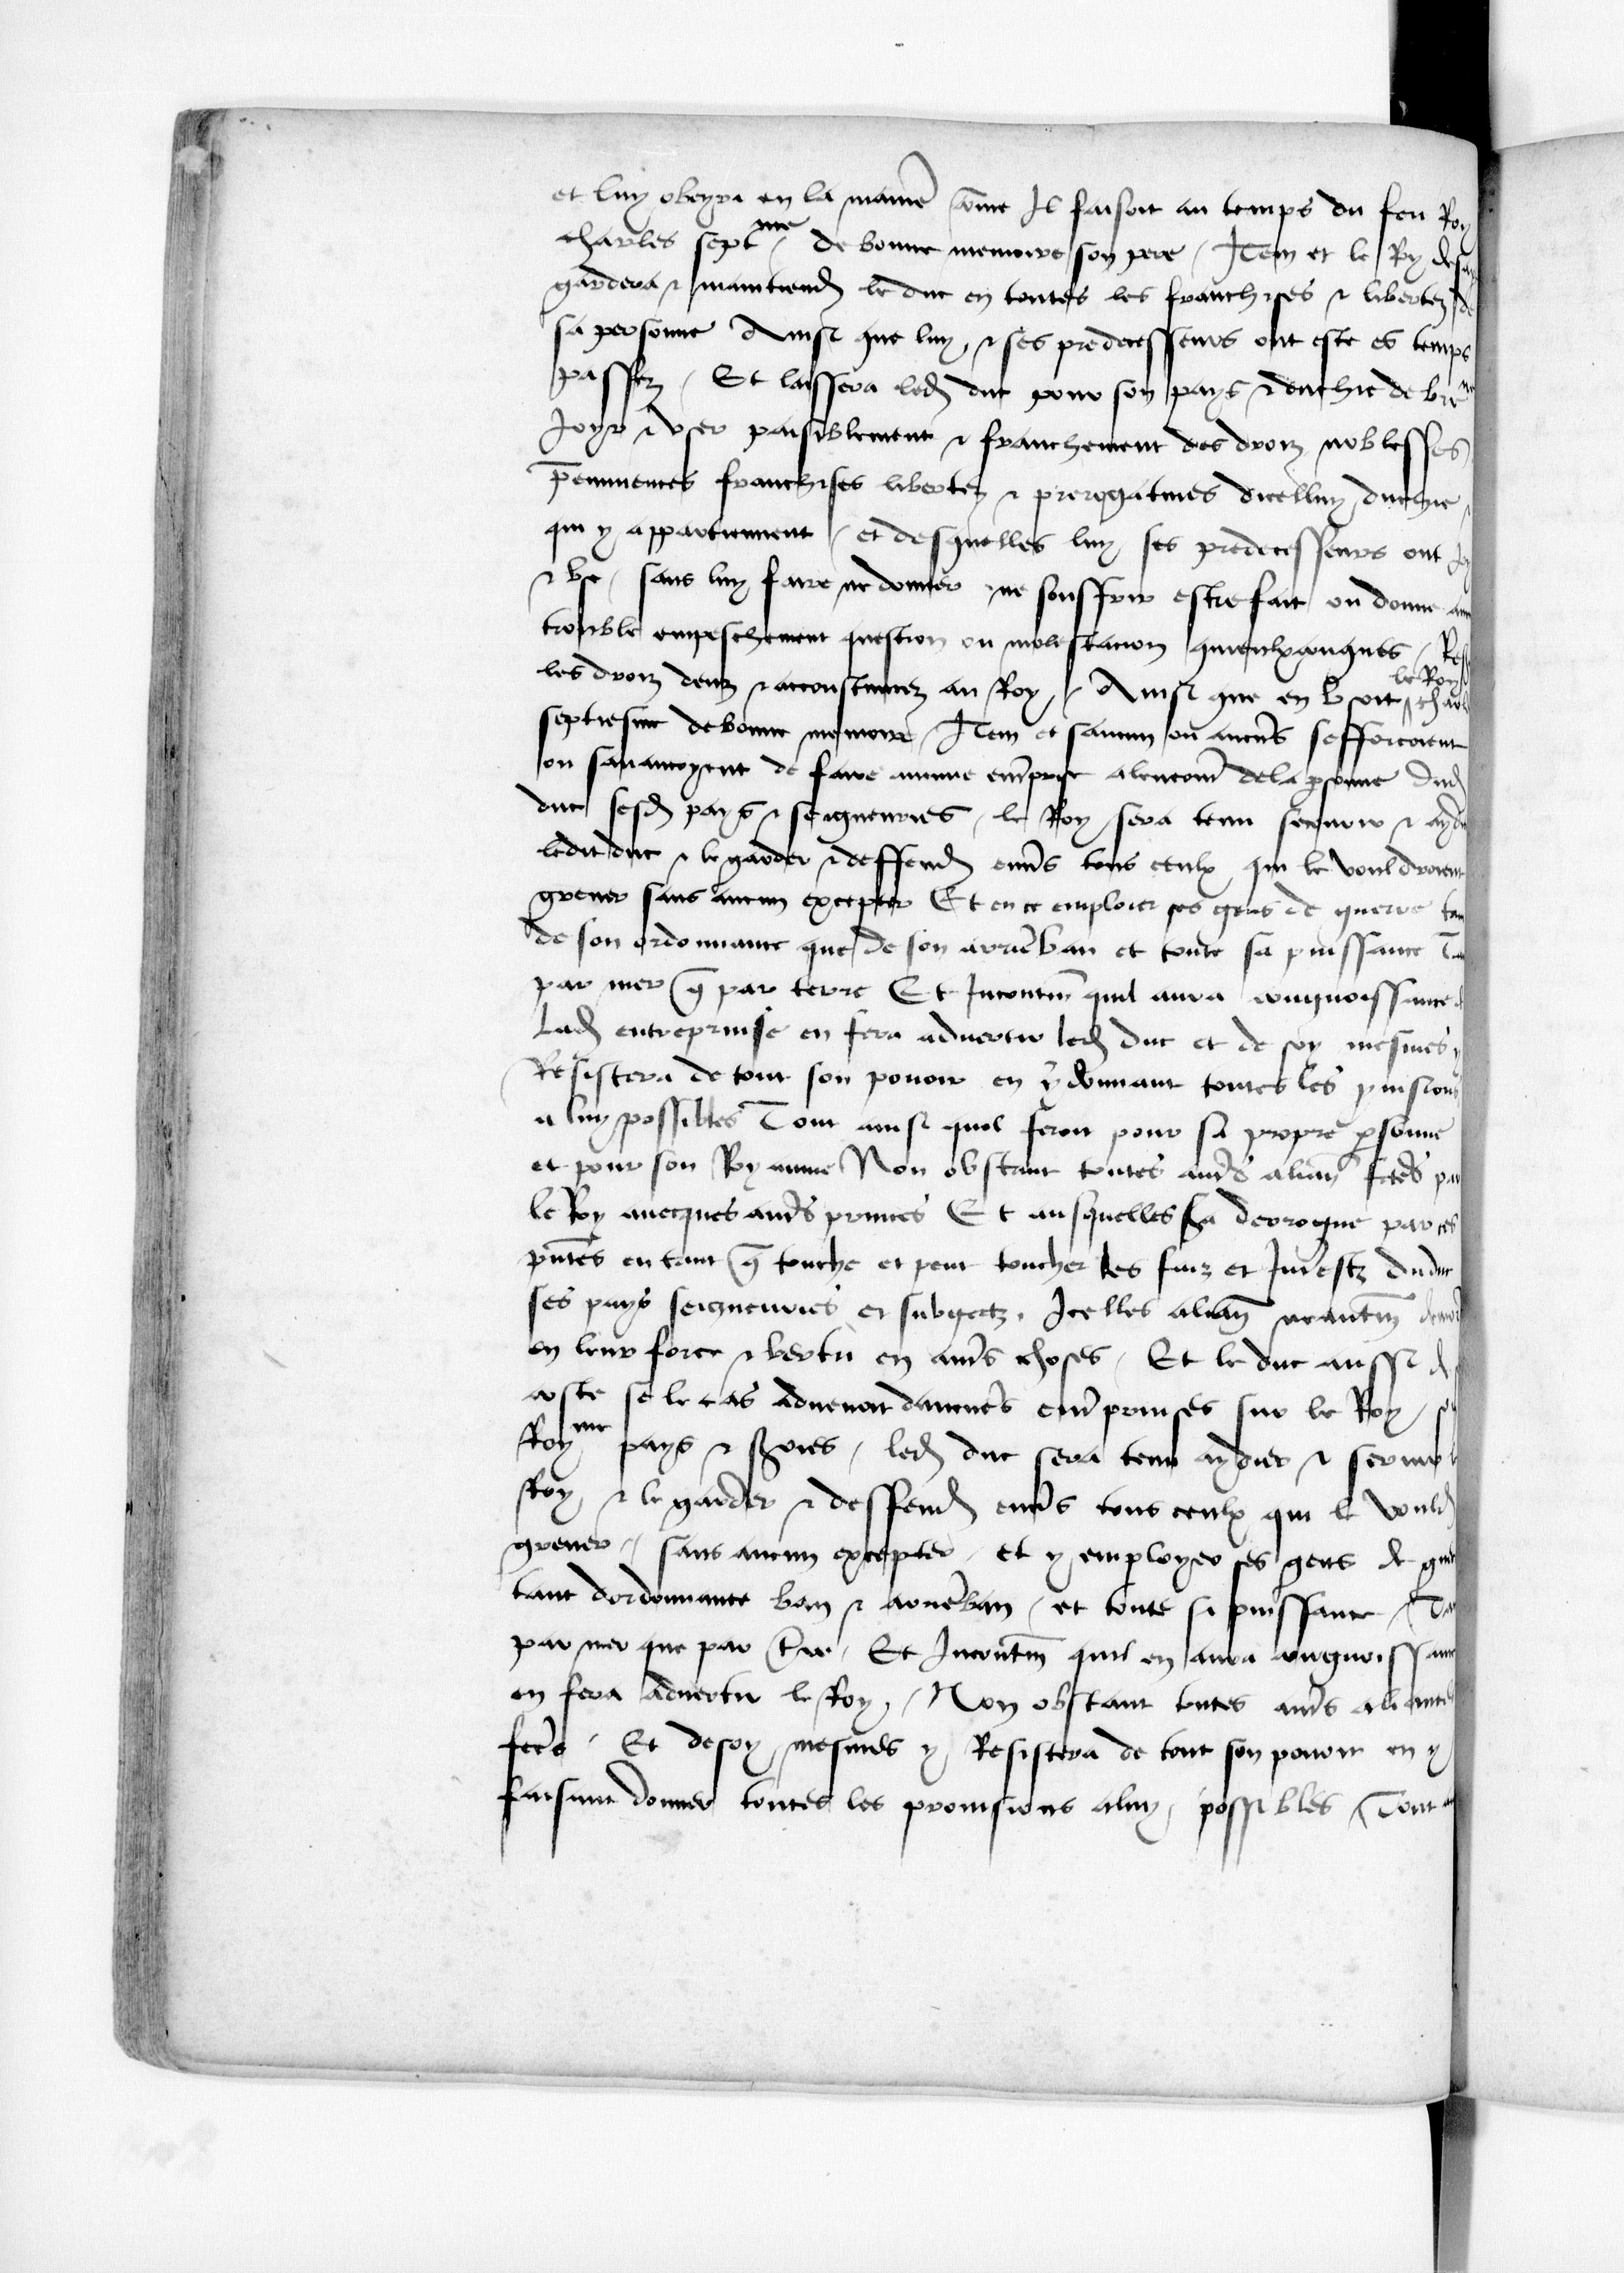 et luy obeyra en la manie come Il faisoit au temps du feu Roy
charles sept me de bonne memoire son pere / Item et le Roy
gardera & maintiend le duc en toutes les franchises & libertez de
sa personne Ainsi que luy & ses predecesseurs ont este es temps
passez / Et laissera led duc pour son pays & duchie de bre ne
Joyr & vser paisiblement & franchement des droiz noblesses
preminences franchises libertez & prerogatiues dicelluy duchie
qui y appartiennent / et desquelles luy ses predecesseurs ont Joy
& vse / sans luy faire ne donner ne souffrir estre fait ou donne
trouble empeschement question ou molestacion quieulxconques /
les droiz deuz & acoustumez au Roy / Ainsi que en vsoit le Roy charl
septiesme de bonne memoire / Item et saucun ou aucuns sefforcoient
ou sauancoyent de faire aucune emprise alencontre de la psonne dud
duc sesd pays & seigneuries / le Roy sera tenu secourir & ayd
ledit duc & le garder & deffend enus tous ceulx qui le vouldroient
greuer sans aucun excepter Et en ce emploier ses gens de guerre tan
de son ordonnance que de son arrieban et toute sa puissance Tan
par mer q par terre Et Incontin quil aura congnoissance
lad entreprinse en fera aduertir led duc et de soy mesmes y
Resistera de tout son pouoir en y donnant toutes les puisions
a luy possibles Tout ainsi quil feroit pour sa propre psonne
et pour son Royaume Non obstant toutes aues alian fctes par
le Roy auecques aues princes Et ausquelles sa derogue par ces
pntes en tant q touche et peut toucher les faiz et Intestz dud duc
ses pays seigneuries et subgectz / Icelles alian neantm demor
en leur force & vertu en aues choses / Et le duc aussi de
coste se le cas aduenoit daucunes emprinses sur le Roy / so
Roy me pays & sgries / led duc sera tenu aydier & seruir l
Roy & le garder & deffend enus tous ceulx qui le vould
greuer / sans aucun excepter / et y employer ses gens de gue
tant dordonnance ban & arrieban / et toute sa puissance / Tan
par mer que par tre / Et Incontin quil en aura congnoissance
en fera aduertir le Roy / Non obstant toutes aues aliances
fctes / Et de soy mesmes y Resistera de tout son pouoir en y
faisant donner toutes les prouisions a luy possibles / Tout